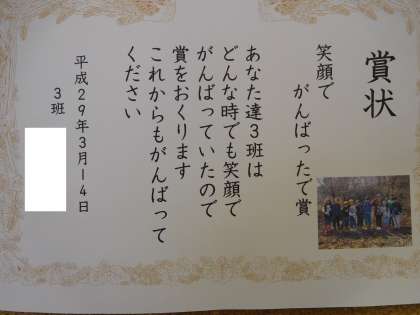 賞状
笑顔で
がんばったで賞
あなた達３班は
どんな時でも笑顔で
がんばっていたので
賞をおくります
これからもがんばって
ください
平成２９年３月１４日
３班